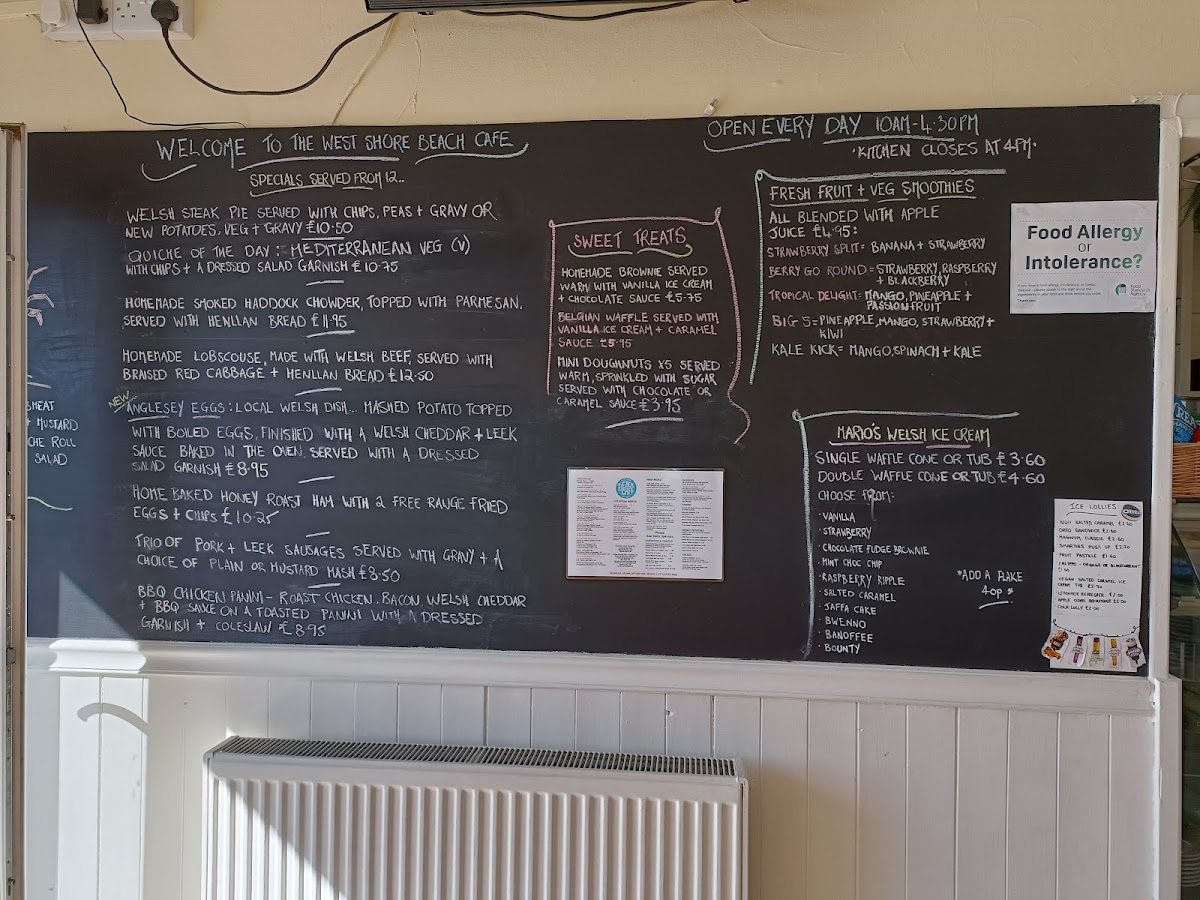 WELCOME TO THE WEST SHORE BEACH CAFE
SPECIALS SERVED FROM 12..
WELSH STEAK PIE SERVED WITH CHIPS, PEAS + GRAVY OR
NEW POTATOES, VEG + GRAVY £10.50
QUICHE OF THE DAY: MEDITERRANEAN VEG (V)
WITH CHIPS + A DRESSED SALAD GARNISH £10.75
HOMEMADE SMOKED HADDOCK CHOWDER, TOPPED WITH PARMESAN.
SERVED WITH HENLLAN BREAD £11.95
HOMEMADE LOBSCOUSE, MADE WITH WELSH BEEF, SERVED WITH
BRAISED RED CABBAGE + HENLLAN BREAD £12.50
NEW
ANGLESEY EGGS: LOCAL WELSH DISH... MASHED POTATO TOPPED
WITH BOILED EGGS, FINISHED WITH A WELSH CHEDDAR + LEEK
SAUCE BAKED IN THE OVEN. SERVED WITH A DRESSED
SALAD GARNISH £8.95
HOME BAKED HONEY ROAST HAM WITH 2 FREE RANGE FRIED
EGGS + CHIPS £10.25
TRIO OF PORK + LEEK SAUSAGES SERVED WITH GRAVY + A
CHOICE OF PLAIN OR MUSTARD MASH £8.50
BBQ CHICKEN PANINI - ROAST CHICKEN, BACON, WELSH CHEDDAR
+ BBQ SAUCE ON A TOASTED PANINI WITH A DRESSED
GARNISH + COLESLAW £8.95
MEAT
+ MUSTARD
CHE ROLL
SALAD
SWEET TREATS
HOMEMADE BROWNIE SERVED
WARM WITH VANILLA ICE CREAM
+ CHOCOLATE SAUCE £5.75
BELGIAN WAFFLE SERVED WITH
VANILLA ICE CREAM + CARAMEL
SAUCE £5.95
MINI DOUGHNUTS X5 SERVED
WARM, SPRINKLED WITH SUGAR
SERVED WITH CHOCOLATE OR
CARAMEL SAUCE £3.95
OPEN EVERY DAY 10AM-4.30PM
·KITCHEN CLOSES AT 4PM·
FRESH FRUIT + VEG SMOOTHIES
ALL BLENDED WITH APPLE
JUICE £4.95:
STRAWBERRY SPLIT= BANANA + STRAWBERRY
BERRY GO ROUND= STRAWBERRY, RASPBERRY
+ BLACKBERRY
TROPICAL DELIGHT= MANGO, PINEAPPLE +
PASSIONFRUIT
BIG 5= PINEAPPLE, MANGO, STRAWBERRY +
KIWI
KALE KICK= MANGO, SPINACH + KALE
Food Allergy
or
Intolerance?
Food
Standards
Agency
MARIO'S WELSH ICE CREAM
SINGLE WAFFLE CONE OR TUB £3.60
DOUBLE WAFFLE CONE OR TUB £4.60
CHOOSE FROM:
·VANILLA
·STRAWBERRY
·CHOCOLATE FUDGE BROWNIE
·MINT CHOC CHIP
·RASPBERRY RIPPLE
·SALTED CARAMEL
·JAFFA CAKE
·BWENNO
·BANOFFEE
·BOUNTY
*ADD A FLAKE
40P*
ICE LOLLIES
SALTED CARAMEL
OREO SANDWICH
MAGNUM, CLASSIC
SMARTIES PUSH UP
FRUIT PASTILLE
VEGAN SALTED CARAMEL ICE
CREAM TUB
COLA LOLLY £2.00